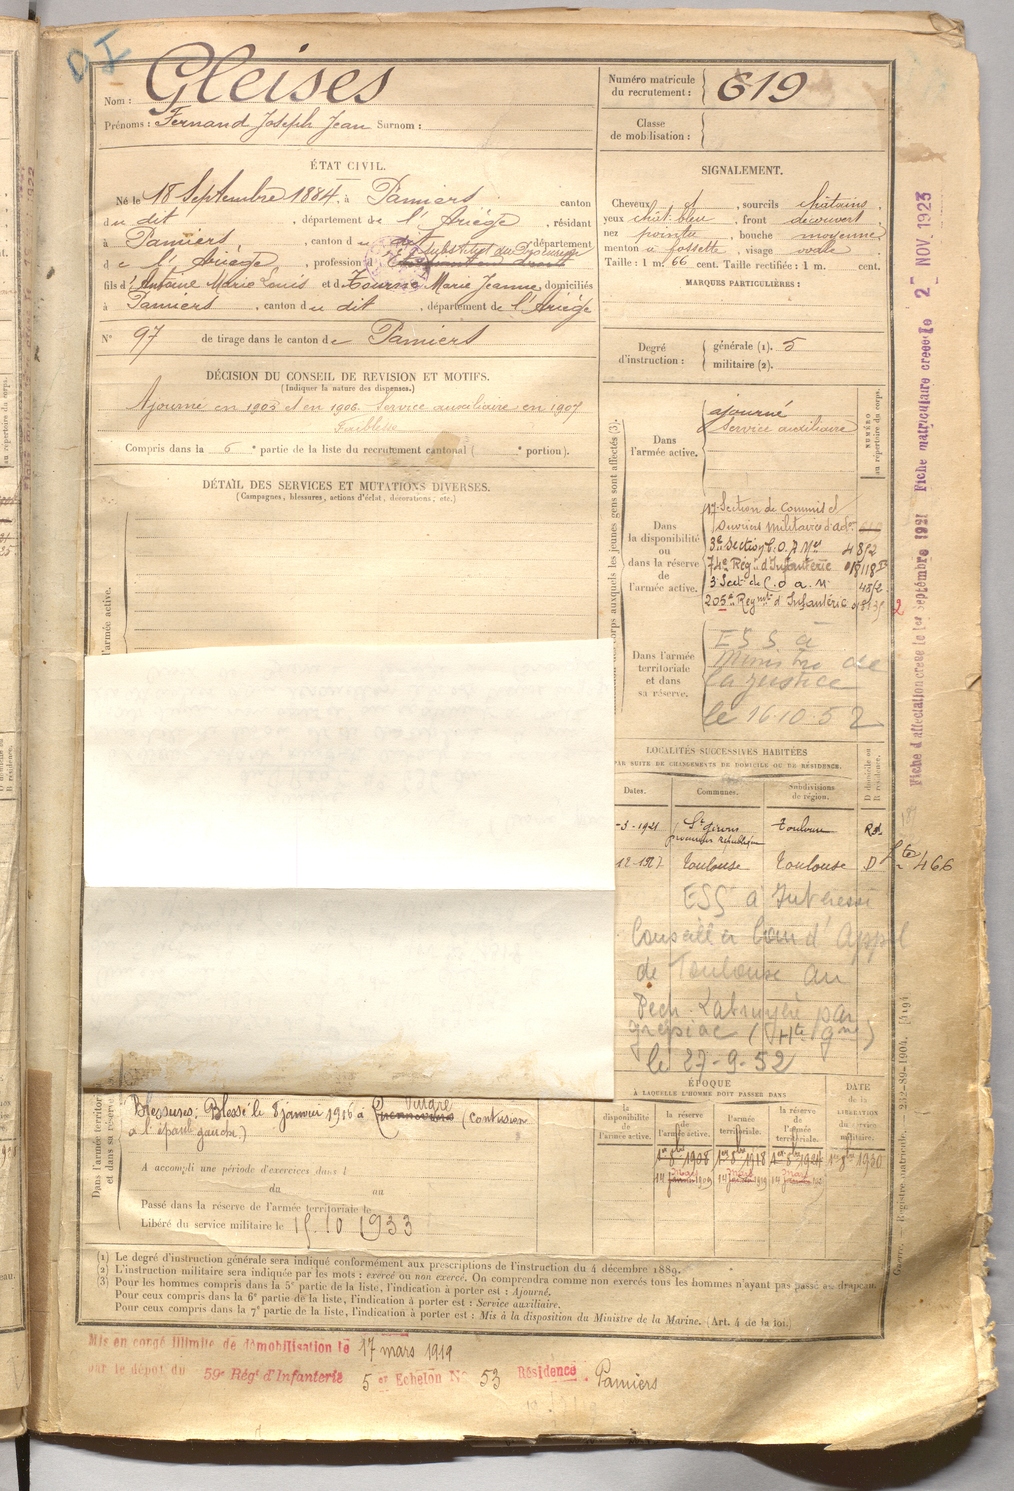 D I
Nom : Gleises
Prénoms : Fernand Joseph Jean Surnom :
Numéro matricule du recrutement : 619
Classe de mobilisation :
ÉTAT CIVIL.
Né le 18 Septembre 1884, à Pamiers canton
du dit , département de l'Ariège , résidant
à Pamiers , canton du dit département
Substitut du Procureur
de l'Ariège , profession d Etudiant en droit
fils d'Antoine Marie Louis et de Tourné Marie Jeanne, domiciliés
à Pamiers , canton du dit , département de l'Ariège
N° 97 de tirage dans le canton de Pamiers
SIGNALEMENT.
Cheveux et , sourcils châtains ,
yeux chât. bleu , front découvert ,
nez pointu , bouche moyenne,
menton à fossette , visage ovale
Taille : 1 m. 66 cent. Taille rectifiée : 1 m. cent.
MARQUES PARTICULIÈRES :
Degré d'instruction : générale (1). 5
militaire (2).
DÉCISION DU CONSEIL DE REVISION ET MOTIFS.
(Indiquer la nature des dispenses.)
Ajourné en 1905 et en 1906. Service auxiliaire en 1907
Faiblesse
Compris dans la 6e partie de la liste du recrutement cantonal ( e portion).
DÉTAIL DES SERVICES ET MUTATIONS DIVERSES.
(Campagnes, blessures, actions d'éclat, décorations, etc.)
l'armée active.
corps auxquels les jeunes gens sont affectés (3).
NUMÉRO au répertoire du corps.
Dans l'armée active.
ajourné
Service auxiliaire
Dans la disponibilité ou dans la réserve de l'armée active.
17e Section de Commis et
Ouvriers militaires d'adon
3e Section C. O. A. Mre 4852
74e Régt d'Infanterie
3 Sect. de C. o a. M 4852
205e Regmt d'Infanterie
2
Dans l'armée territoriale et dans sa réserve.
ESS à
Ministre de
la Justice
le 16-10-52
LOCALITÉS SUCCESSIVES HABITÉES
PAR SUITE DE CHANGEMENTS DE DOMICILE OU DE RÉSIDENCE.
Dates. Communes. Subdivisions de région. D domicile ou R résidence.
-3-1921 St Girons Toulouse Rd.
procureur république
12-1927 Toulouse Toulouse D
466
ESS à Intéressé
Conseiller Cour d'Appel
de Toulouse au
Pech Labruyère par
Grépiac (Hte Gne)
le 27-9-52
ÉPOQUE
À LAQUELLE L'HOMME DOIT PASSER DANS
DATE de la LIBÉRATION du service militaire.
la disponibilité de l'armée active. la réserve de l'armée active. l'armée territoriale. la réserve de l'armée territoriale.
1er 8bre 1908 1er 8bre 1918 1er 8bre 1924 1er 8bre 1930
Dans l'armée territor
et dans sa réserve
Blessures : Blessé le 8 janvier 1916 à Vingré (contusion
à l'épaule gauche.)
A accompli une période d'exercices dans l
du au
Passé dans la réserve de l'armée territoriale le
Libéré du service militaire le 15-10 1933
(1) Le degré d'instruction générale sera indiqué conformément aux prescriptions de l'instruction du 4 décembre 1889.
(2) L'instruction militaire sera indiquée par les mots : exercé ou non exercé. On comprendra comme non exercés tous les hommes n'ayant pas passé au drapeau.
(3) Pour les hommes compris dans la 5e partie de la liste, l'indication à porter est : Ajourné.
Pour ceux compris dans la 6e partie de la liste, l'indication à porter est : Service auxiliaire.
Pour ceux compris dans la 7e partie de la liste, l'indication à porter est : Mis à la disposition du Ministre de la Marine. (Art. 4 de la loi.)
Mis en congé illimité de démobilisation le 17 mars 1919
par le dépôt du 59e Régt d'Infanterie 5 er Echelon N° 53 Résidence Pamiers
Fiche d'affectation créée le 1er septembre 1921 Fiche matriculaire créée le 2 NOV. 1923
Guerre. — Registre matricule. 232-89-1904. [4194